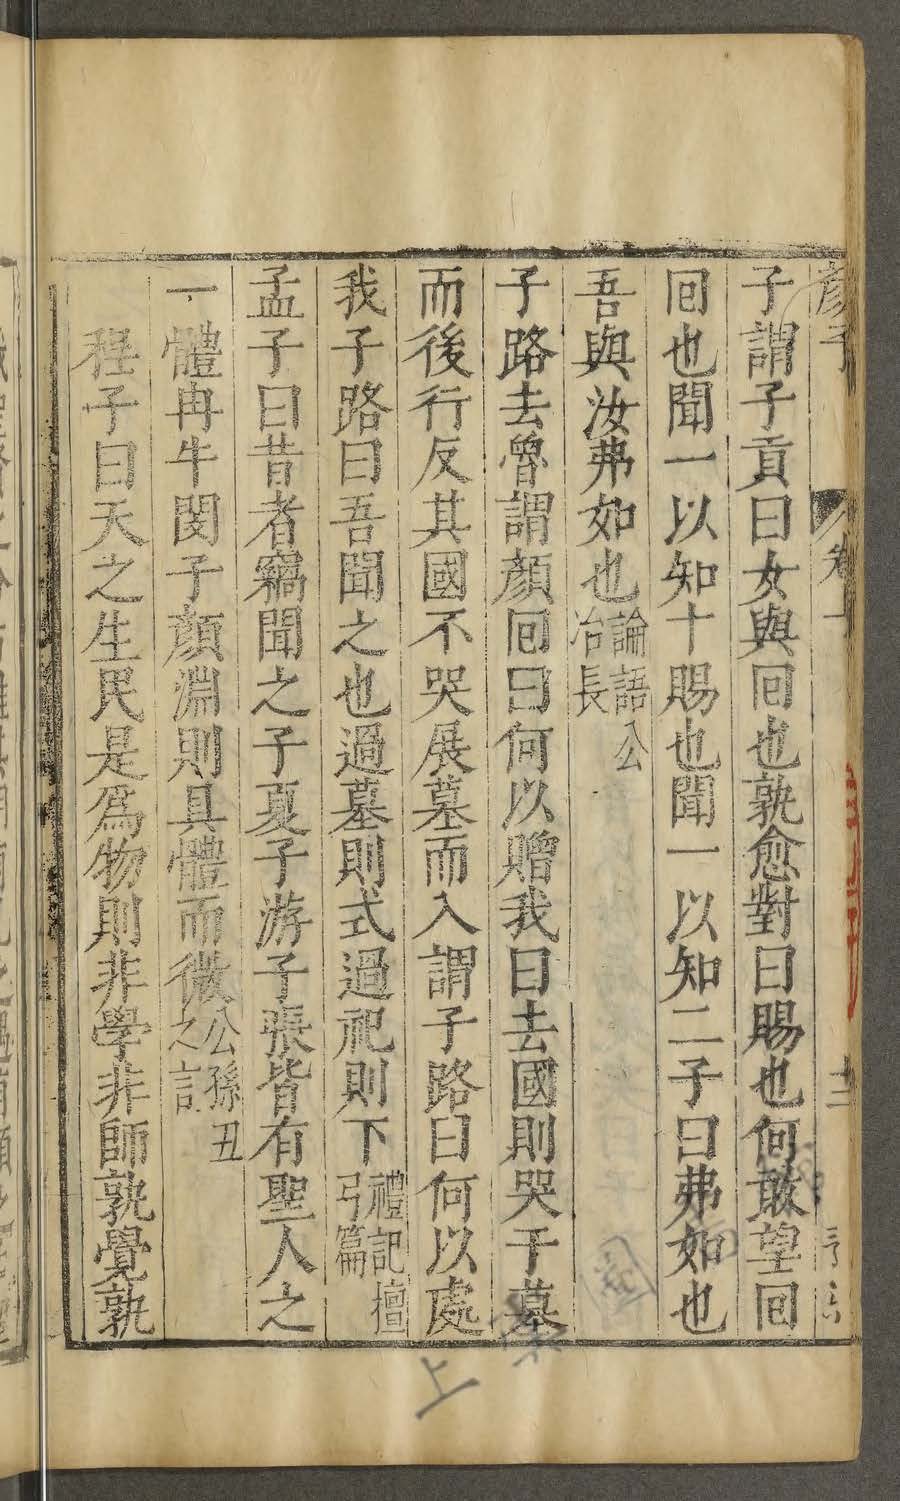 顏子
卷一
子謂子貢曰女與囘也孰愈對曰賜也何敢望囘
囘也聞一以知十賜也聞一以知二子曰弗如也
吾與汝弗如也論語公冶長
子路去魯謂顏囘曰何以贈我曰去國則哭于墓
而後行反其國不哭展墓而入謂子路曰何以處
我子路曰吾聞之也過墓則式過祀則下禮記檀弓篇
孟子曰昔者竊聞之子夏子游子張皆有聖人之
一體冉牛閔子顏淵則具體而微公孫丑之言
程子曰天之生民是爲物則非學非師孰覺孰
上